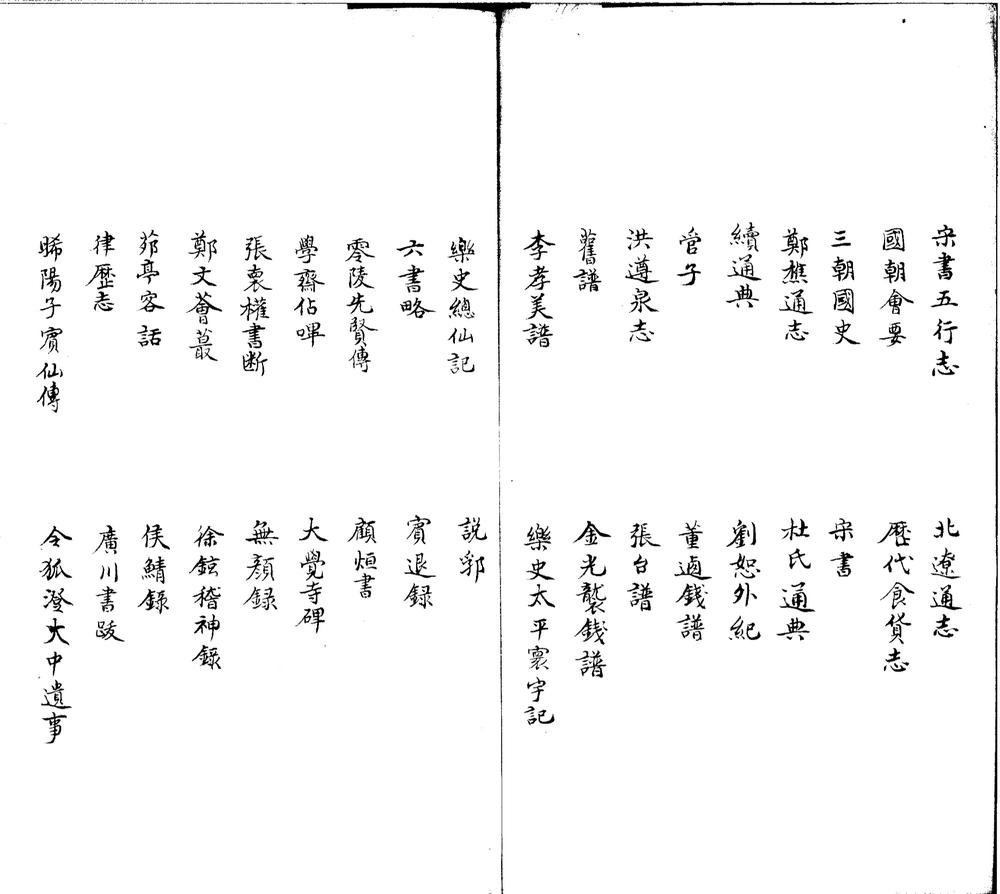 宋書五行志
北遼通志
國朝會要
歷代食貨志
三朝國史
宋書
鄭樵通志
杜氏通典
續通典
劉恕外紀
管子
董逌錢譜
洪遵泉志
張台譜
舊譜
金光襲錢譜
李孝美譜
樂史太平寰宇記
樂史總仙記
説郛
六書略
賓退錄
零陵先賢傳
顧烜書
學齋佔嗶
大覺寺碑
張褱權書断
無顏録
鄭文薈蕞
徐鉉稽神録
茆亭客話
侯鯖錄
律歷志
廣川書跋
晞陽子賓仙傳
令狐澄大中遺事